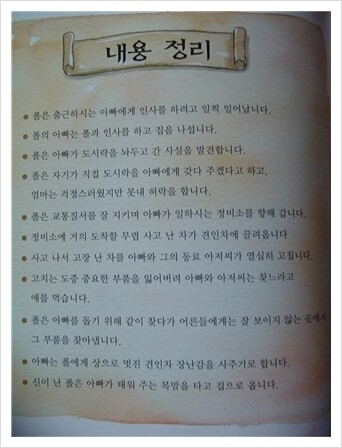 내용 정리
폴은 출근하시는 아빠에게 인사를 하려고 일찍 일어납니다.
폴의 아빠는 폴과 인사를 하고 집을 나섭니다.
폴은 아빠가 도시락을 놔두고 간 사실을 발견합니다.
폴은 자기가 직접 도시락을 아빠에게 갖다 주겠다고 하고,
엄마는 걱정스러웠지만 못내 허락을 합니다.
폴은 교통질서를 잘 지키며 아빠가 일하시는 정비소를 향해 갑니다.
정비소에 거의 도착할 무렵 사고 난 차가 견인차에 끌려옵니다
사고 나서 고장 난 차를 아빠와 그의 동료 아저씨가 열심히 고칩니다.
고치는 도중 중요한 부품을 잃어버려 아빠와 아저씨는 찾느라고
애를 먹습니다.
폴은 아빠를 돕기 위해 같이 찾다가 어른들에게는 잘 보이지 않는 곳에서
그 부품을 찾아냅니다.
아빠는 폴에게 상으로 멋진 견인차 장난감을 사주기로 합니다.
신이 난 폴은 아빠가 태워 주는 목말을 타고 집으로 옵니다.